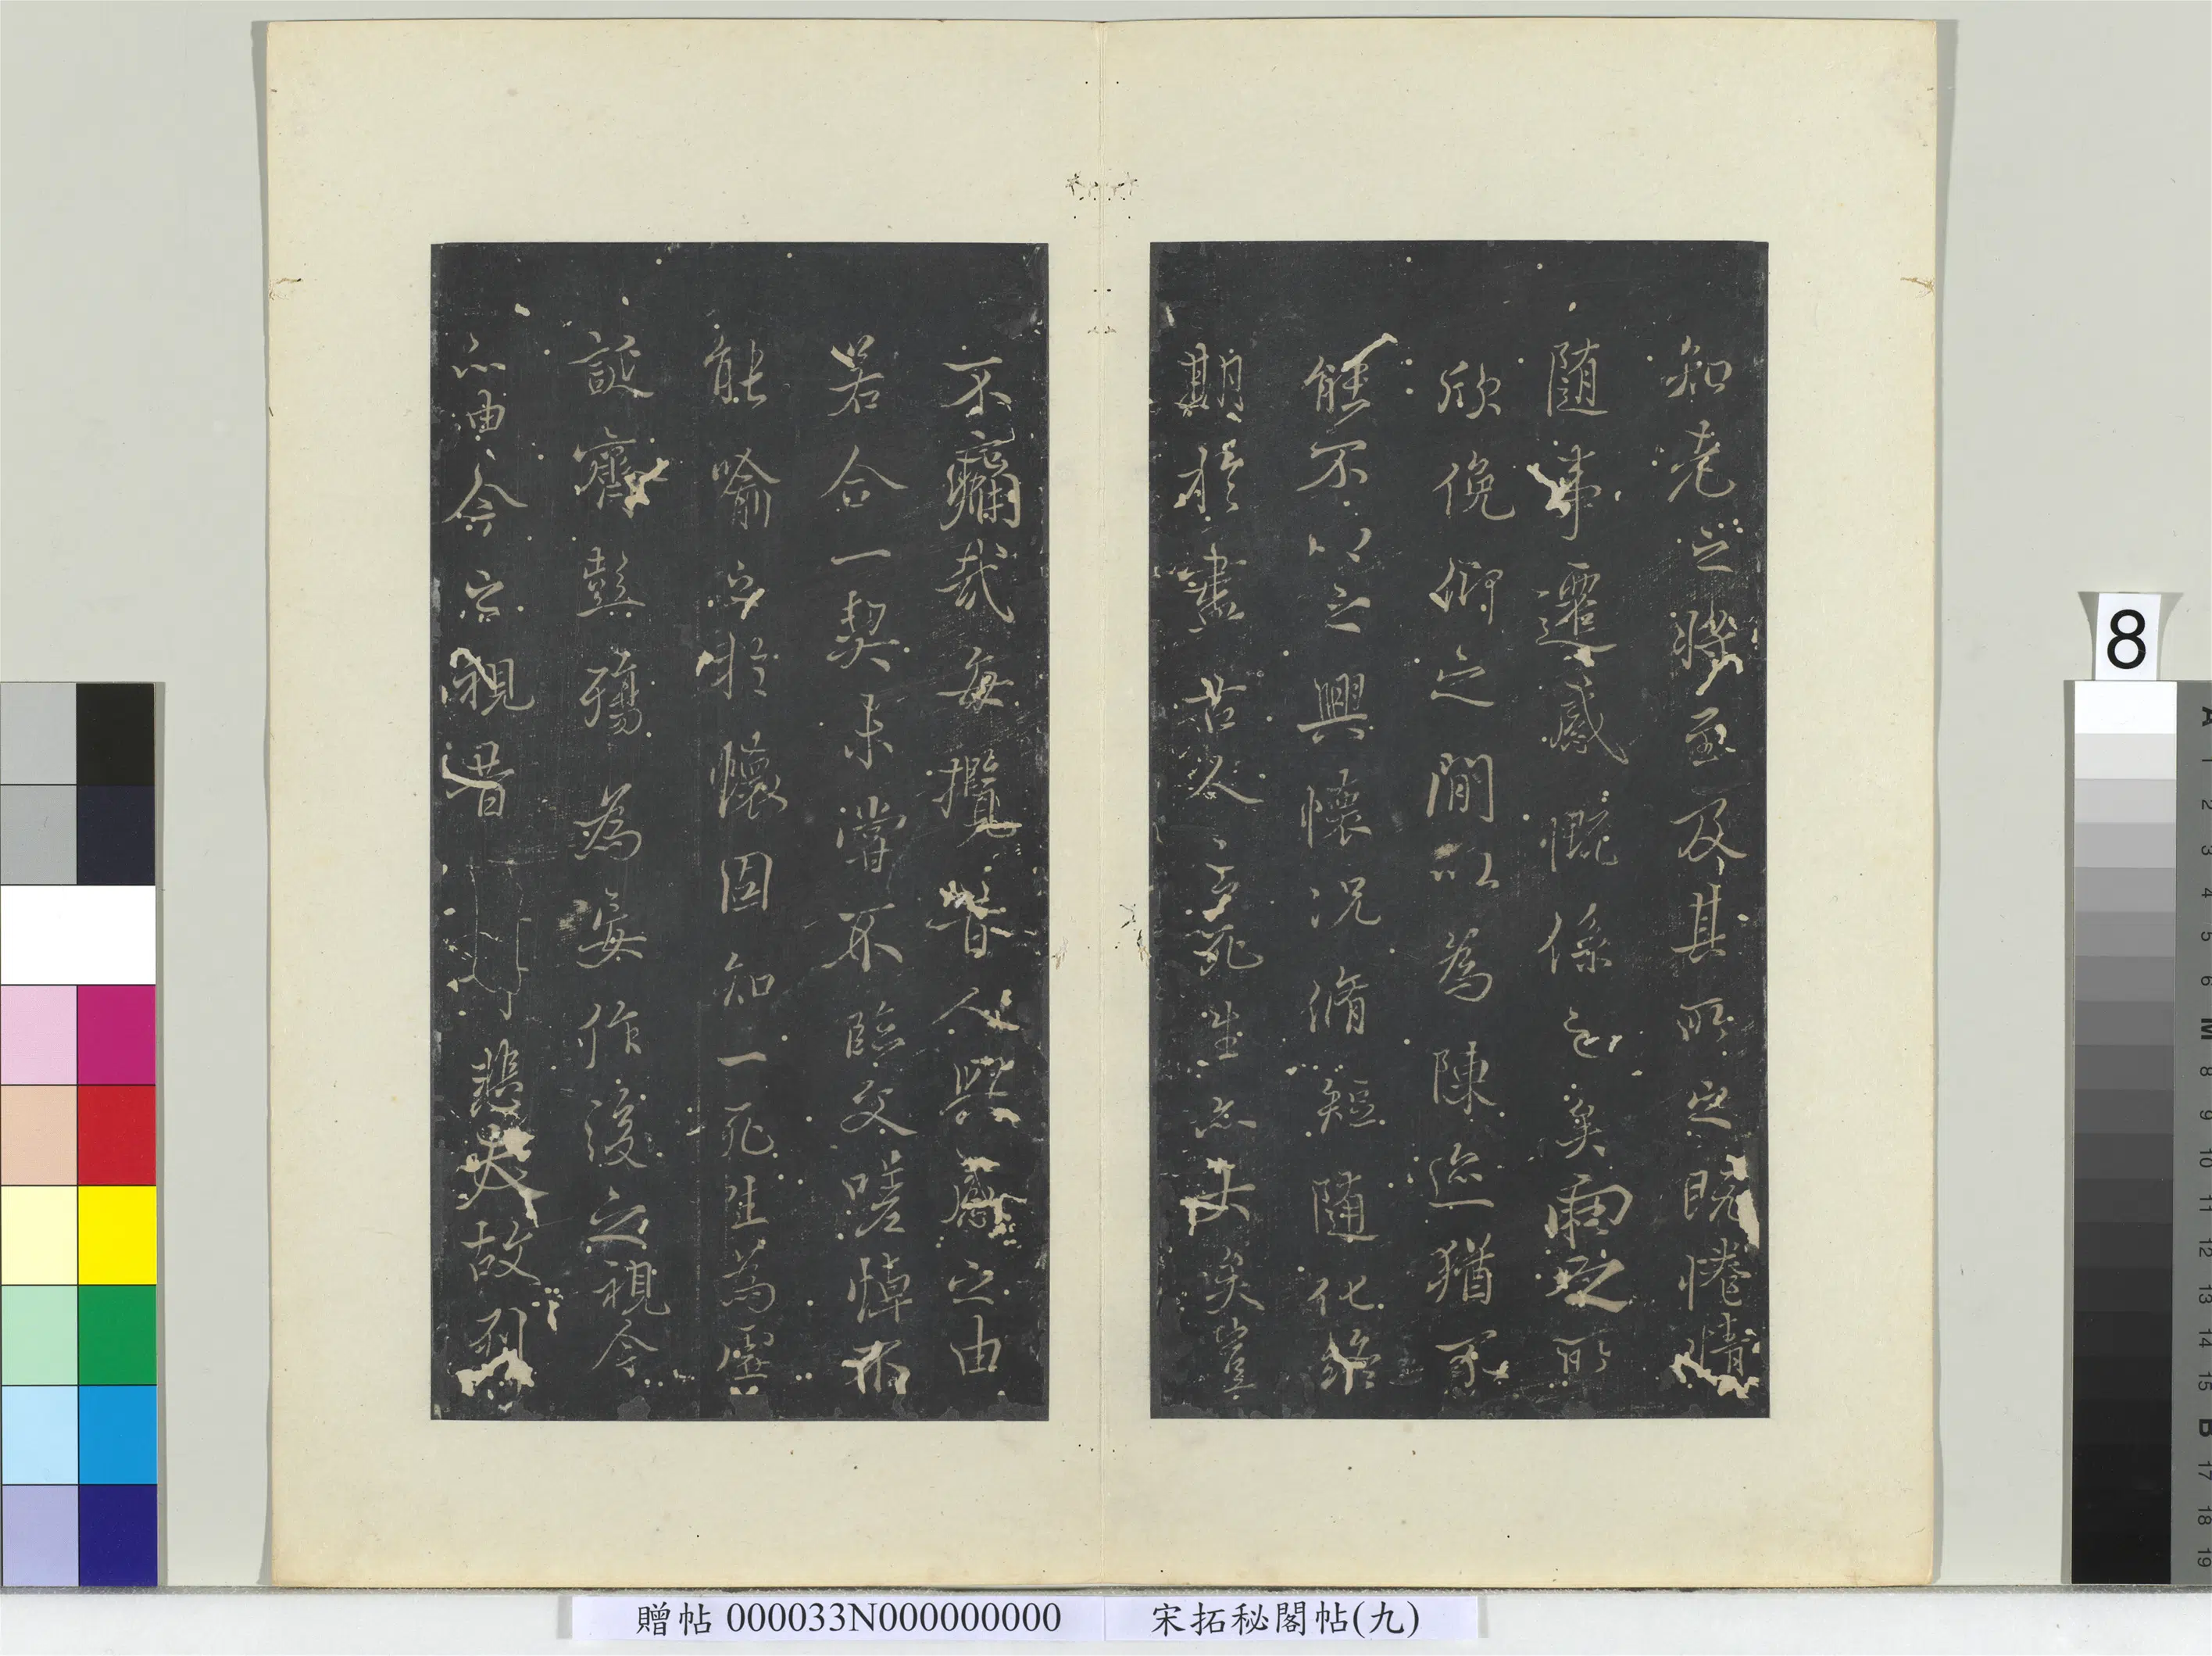 知老之將至及其所之既惓情
随事遷感慨係之矣向之所
欣俛仰之間以為陳迹猶不
能不以之興懷況脩短随化終
期於盡古人云死生亦大矣豈
不痛哉每攬昔人興感之由
若合一契未嘗不臨文嗟悼不
能喻之於懷固知一死生為虛
誕齊彭殤為妄作後之視今
亦由今之視昔 悲夫故列
贈帖 000033N000000000 宋拓秘閣帖(九)
8
A 1 2 3 4 5 6 M 8 9 10 11 12 13 14 15 B 17 18 19